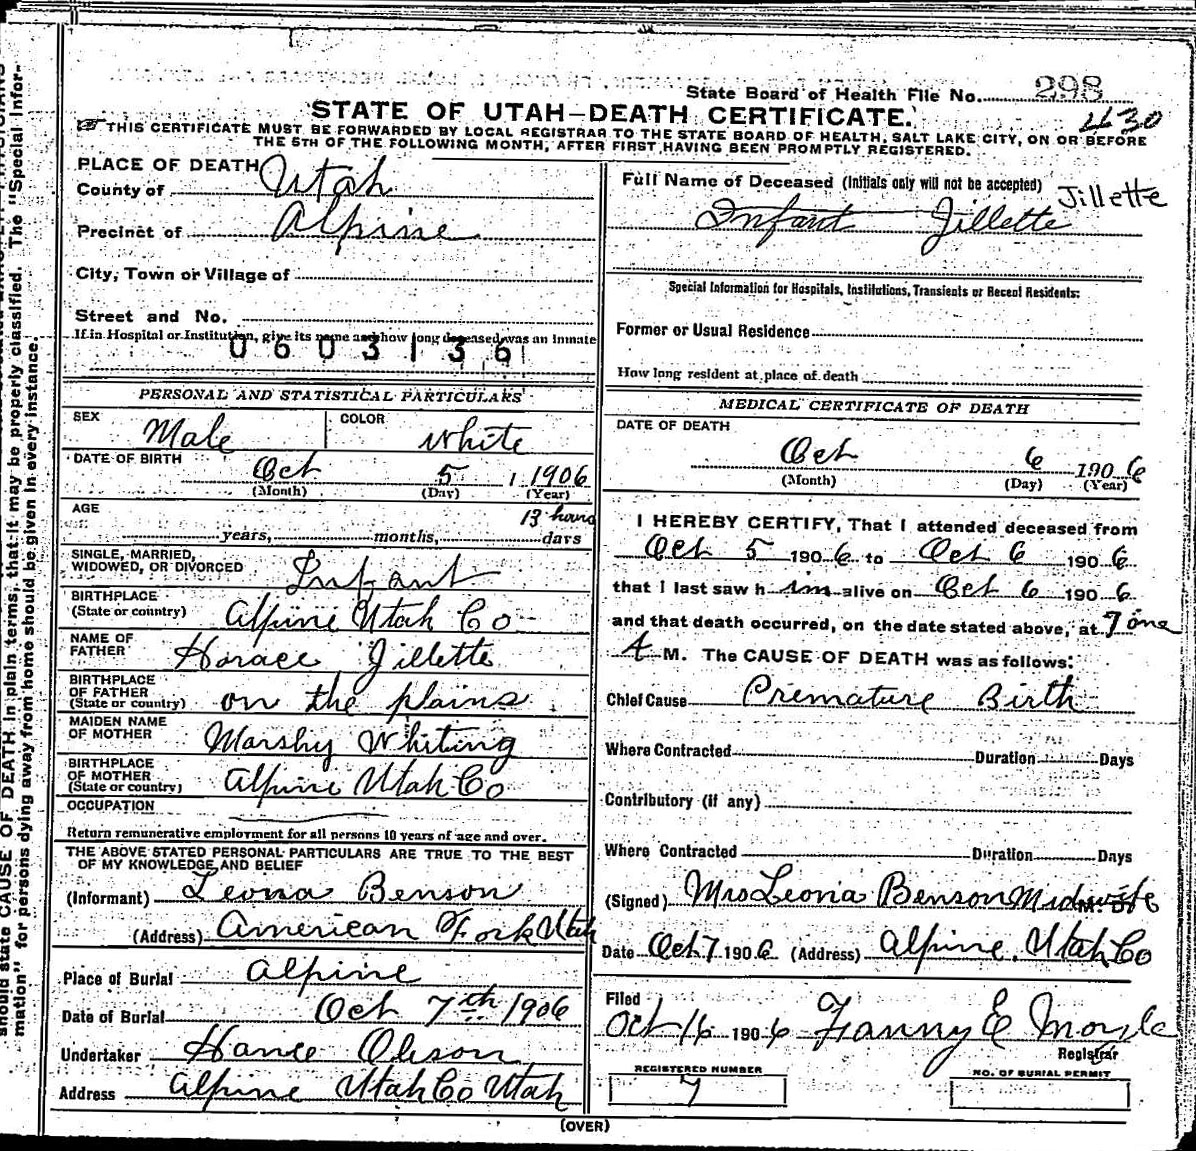 State Board of Health File No. 298
430
STATE OF UTAH—DEATH CERTIFICATE.
THIS CERTIFICATE MUST BE FORWARDED BY LOCAL REGISTRAR TO THE STATE BOARD OF HEALTH, SALT LAKE CITY, ON OR BEFORE
THE 5TH OF THE FOLLOWING MONTH, AFTER FIRST HAVING BEEN PROMPTLY REGISTERED.
PLACE OF DEATH
County of Utah
Precinct of Alpine
City, Town or Village of
Street and No.
If in Hospital or Institution, give its name and how long deceased was an inmate
0603136
PERSONAL AND STATISTICAL PARTICULARS
SEX Male COLOR White
DATE OF BIRTH Oct 5, 1906
(Month) (Day) (Year)
AGE 13 hours
years, months, days
SINGLE, MARRIED,
WIDOWED, OR DIVORCED Infant
BIRTHPLACE
(State or country) Alpine Utah Co
NAME OF
FATHER Horace Jillette
BIRTHPLACE
OF FATHER
(State or country) on the plains
MAIDEN NAME
OF MOTHER Marshy Whiting
BIRTHPLACE
OF MOTHER
(State or country) Alpine Utah Co
OCCUPATION
Return remunerative employment for all persons 10 years of age and over.
THE ABOVE STATED PERSONAL PARTICULARS ARE TRUE TO THE BEST
OF MY KNOWLEDGE AND BELIEF
(Informant) Leona Benson
(Address) American Fork Utah
Place of Burial Alpine
Date of Burial Oct 7th 1906
Undertaker Hance Oleson
Address Alpine Utah Co Utah
Full Name of Deceased (Initials only will not be accepted) Jillette
Infant Jillette
Special Information for Hospitals, Institutions, Transients or Recent Residents:
Former or Usual Residence
How long resident at place of death
MEDICAL CERTIFICATE OF DEATH
DATE OF DEATH
Oct 6 1906
(Month) (Day) (Year)
I HEREBY CERTIFY, That I attended deceased from
Oct 5 1906 to Oct 6 1906
that I last saw him alive on Oct 6 1906
and that death occurred, on the date stated above, at 7 one
A M. The CAUSE OF DEATH was as follows:
Chief Cause Premature Birth
Where Contracted Duration Days
Contributory (if any)
Where Contracted Duration Days
(Signed) Mrs Leona Benson Midwife M. D.
Date Oct 7 1906 (Address) Alpine, Utah Co
Filed
Oct 16 1906 Fanny E Moyle
Registrar
REGISTERED NUMBER
7
NO. OF BURIAL PERMIT
(OVER)
should state CAUSE OF DEATH in plain terms, that it may be properly classified. The "Special Infor-
mation" for persons dying away from home should be given in every instance.